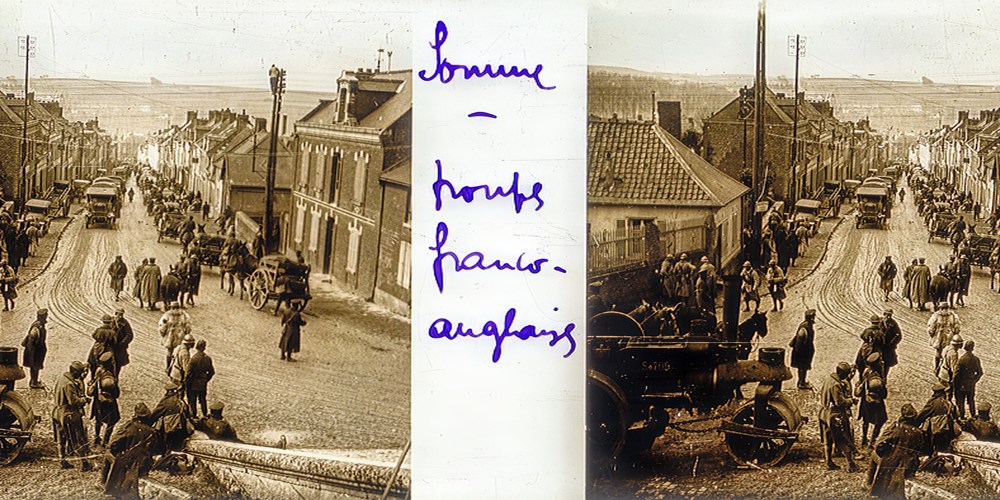 Somme
-
troupes
franco-
anglaises